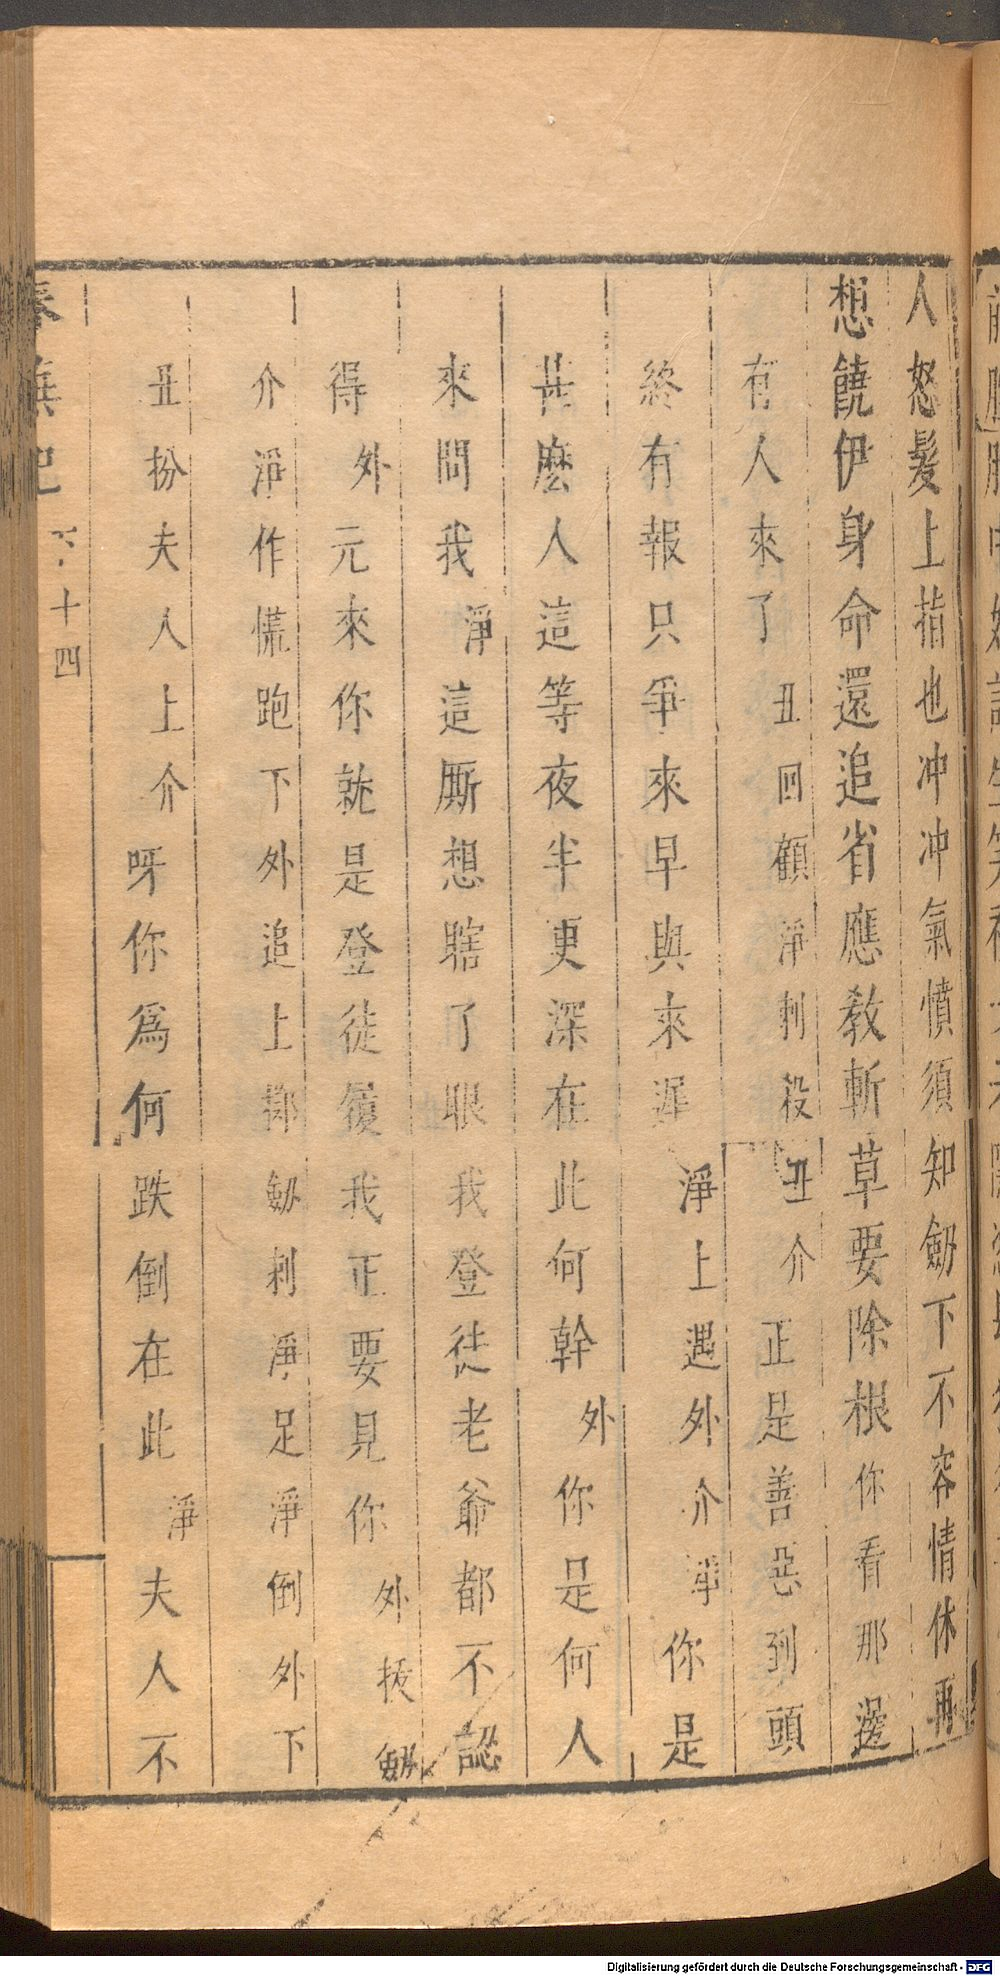 人怒髮上指也冲冲氣憤須知劔下不容情休再
想饒伊身命還追省應教斬草要除根你看那邊
有人來了丑回顧淨刺殺丑介正是善惡到頭
終有報只爭來早與來遲淨上遇外介淨你是
甚麽人這等夜半更深在此何幹外你是何人
來問我淨這厮想瞎了眼我登徒老爺都不認
得外元來你就是登徒履我正要見你外拔劔
介淨作慌跑下外追上擲劔刺淨足淨倒外下
丑扮夫人上介呀你爲何跌倒在此淨夫人不
下十四
Digitalisierung gefördert durch die Deutsche Forschungsgemeinschaft - DFG